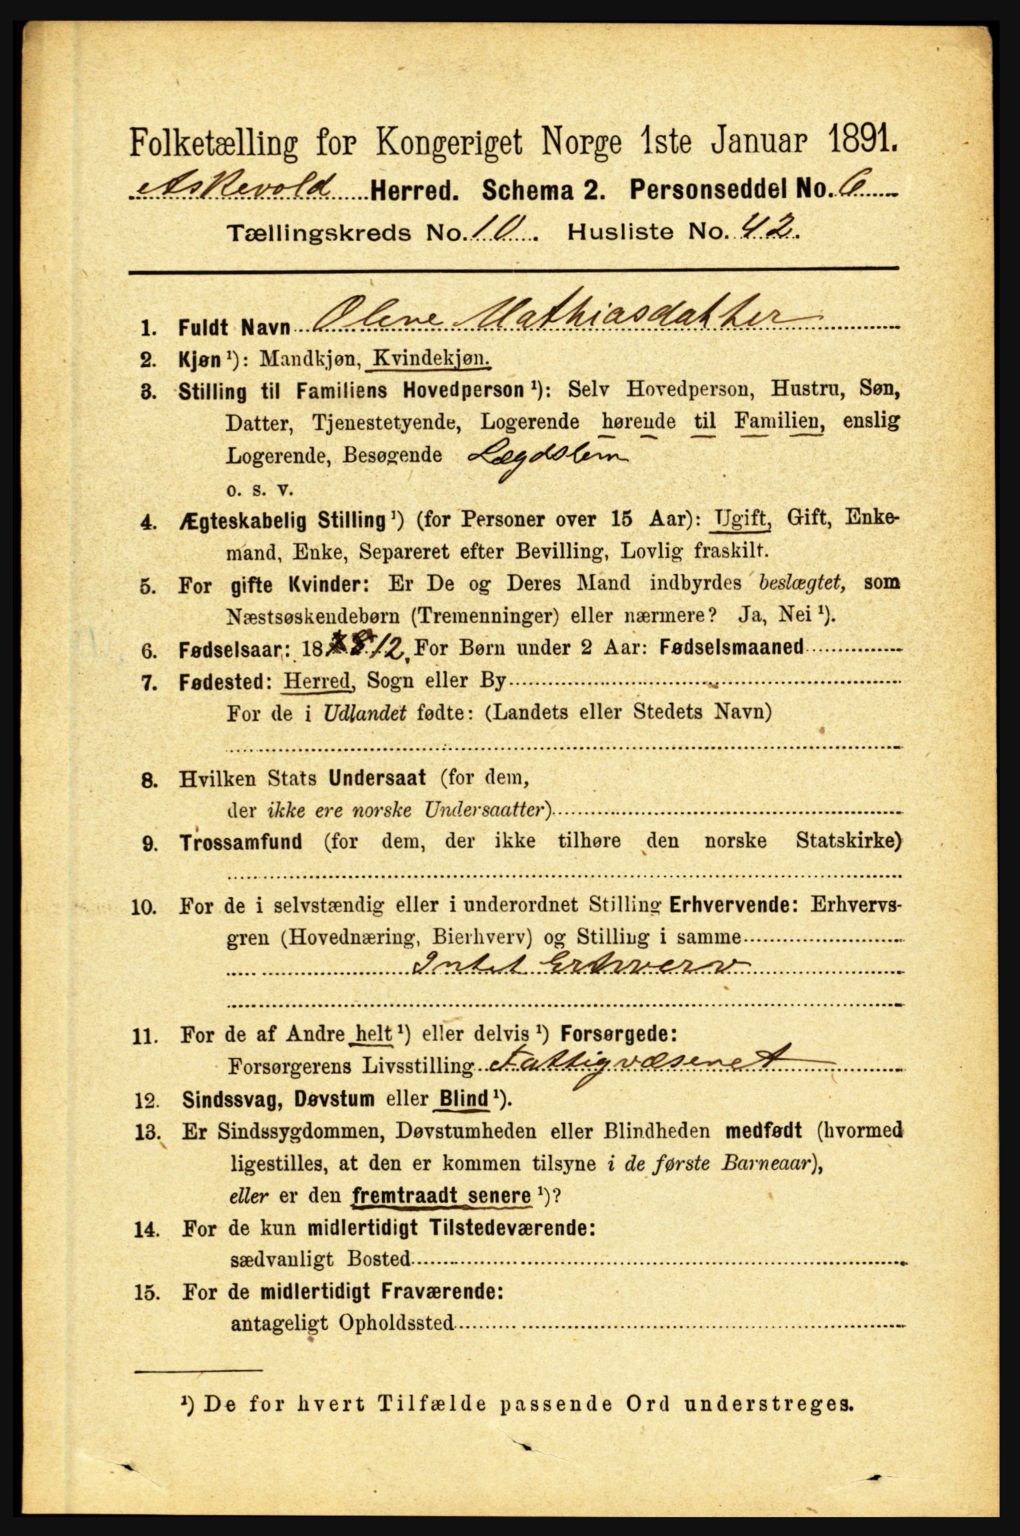 Folketælling for Kongeriget Norge 1ste Januar 1891.
Askevold Herred. Schema 2. Personseddel No. 6
Tællingskreds No. 10. Husliste No. 42.
1. Fuldt Navn Olene Mathiasdatter
2. Kjøn ¹): Mandkjøn, Kvindekjøn.
3. Stilling til Familiens Hovedperson ¹): Selv Hovedperson, Hustru, Søn,
Datter, Tjenestetyende, Logerende hørende til Familien, enslig
Logerende, Besøgende Lægdslem
o. s. v.
4. Ægteskabelig Stilling ¹) (for Personer over 15 Aar): Ugift, Gift, Enke-
mand, Enke, Separeret efter Bevilling, Lovlig fraskilt.
5. For gifte Kvinder: Er De og Deres Mand indbyrdes beslægtet, som
Næstsøskendebørn (Tremenninger) eller nærmere? Ja, Nei ¹).
6. Fødselsaar: 18 12, For Børn under 2 Aar: Fødselsmaaned
7. Fødested: Herred, Sogn eller By
For de i Udlandet fødte: (Landets eller Stedets Navn)
8. Hvilken Stats Undersaat (for dem,
der ikke ere norske Undersaatter)
9. Trossamfund (for dem, der ikke tilhøre den norske Statskirke)
10. For de i selvstændig eller i underordnet Stilling Erhvervende: Erhvervs-
gren (Hovednæring, Bierhverv) og Stilling i samme
Intet Erhverv
11. For de af Andre helt ¹) eller delvis ¹) Forsørgede:
Forsørgerens Livsstilling Fattigvæsenet
12. Sindssvag, Døvstum eller Blind ¹).
13. Er Sindssygdommen, Døvstumheden eller Blindheden medfødt (hvormed
ligestilles, at den er kommen tilsyne i de første Barneaar),
eller er den fremtraadt senere ¹)?
14. For de kun midlertidigt Tilstedeværende:
sædvanligt Bosted
15. For de midlertidigt Fraværende:
antageligt Opholdssted
¹) De for hvert Tilfælde passende Ord understreges.